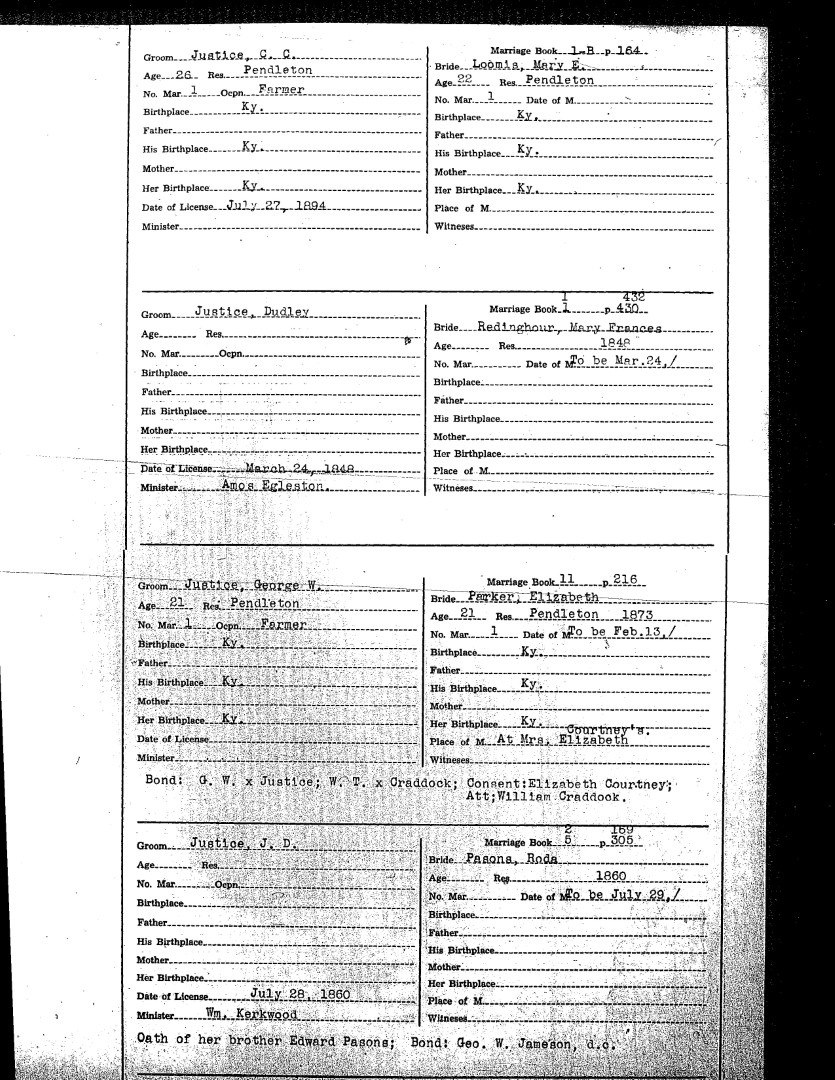 Groom Justice, C. C.
Age 26 Res. Pendleton
No. Mar. 1 Ocpn. Farmer
Birthplace Ky.
Father
His Birthplace Ky.
Mother
Her Birthplace Ky.
Date of License July 27, 1894
Minister
Marriage Book 1-B p 164
Bride Loomis, Mary E.
Age 22 Res. Pendleton
No. Mar. 1 Date of M.
Birthplace Ky.
Father
His Birthplace Ky.
Mother
Her Birthplace Ky.
Place of M.
Witneses
Groom Justice, Dudley
Age Res.
No. Mar. Ocpn.
Birthplace
Father
His Birthplace
Mother
Her Birthplace
Date of License March 24, 1848
Minister Amos Egleston.
1 432
Marriage Book 1 p. 430
Bride Redinghour, Mary Frances
Age Res. 1848
No. Mar. Date of M. To be Mar.24,/
Birthplace
Father
His Birthplace
Mother
Her Birthplace
Place of M.
Witneses
Groom Justice, George W.
Age 21 Res. Pendleton
No. Mar. 1 Ocpn. Farmer
Birthplace Ky.
Father
His Birthplace Ky.
Mother
Her Birthplace Ky.
Date of License
Minister
Marriage Book 11 p. 216
Bride Parker, Elizabeth
Age 21 Res. Pendleton 1873
No. Mar. 1 Date of M. To be Feb.13,/
Birthplace Ky.
Father
His Birthplace Ky.
Mother
Her Birthplace Ky.
Courtney's.
Place of M. At Mrs. Elizabeth
Witneses
Bond: G. W. x Justice; W. T. x Craddock; Consent:Elizabeth Courtney;
Att;William Craddock.
Groom Justice, J. D.
Age Res.
No. Mar. Ocpn.
Birthplace
Father
His Birthplace
Mother
Her Birthplace
Date of License July 28, 1860
Minister Wm. Kerkwood
2 169
Marriage Book 5 p. 305
Bride Pasons, Roda
Age Res. 1860
No. Mar. Date of M. To be July 29,/
Birthplace
Father
His Birthplace
Mother
Her Birthplace
Place of M.
Witneses
Oath of her brother Edward Pasons; Bond: Geo. W. Jameson, d.c.